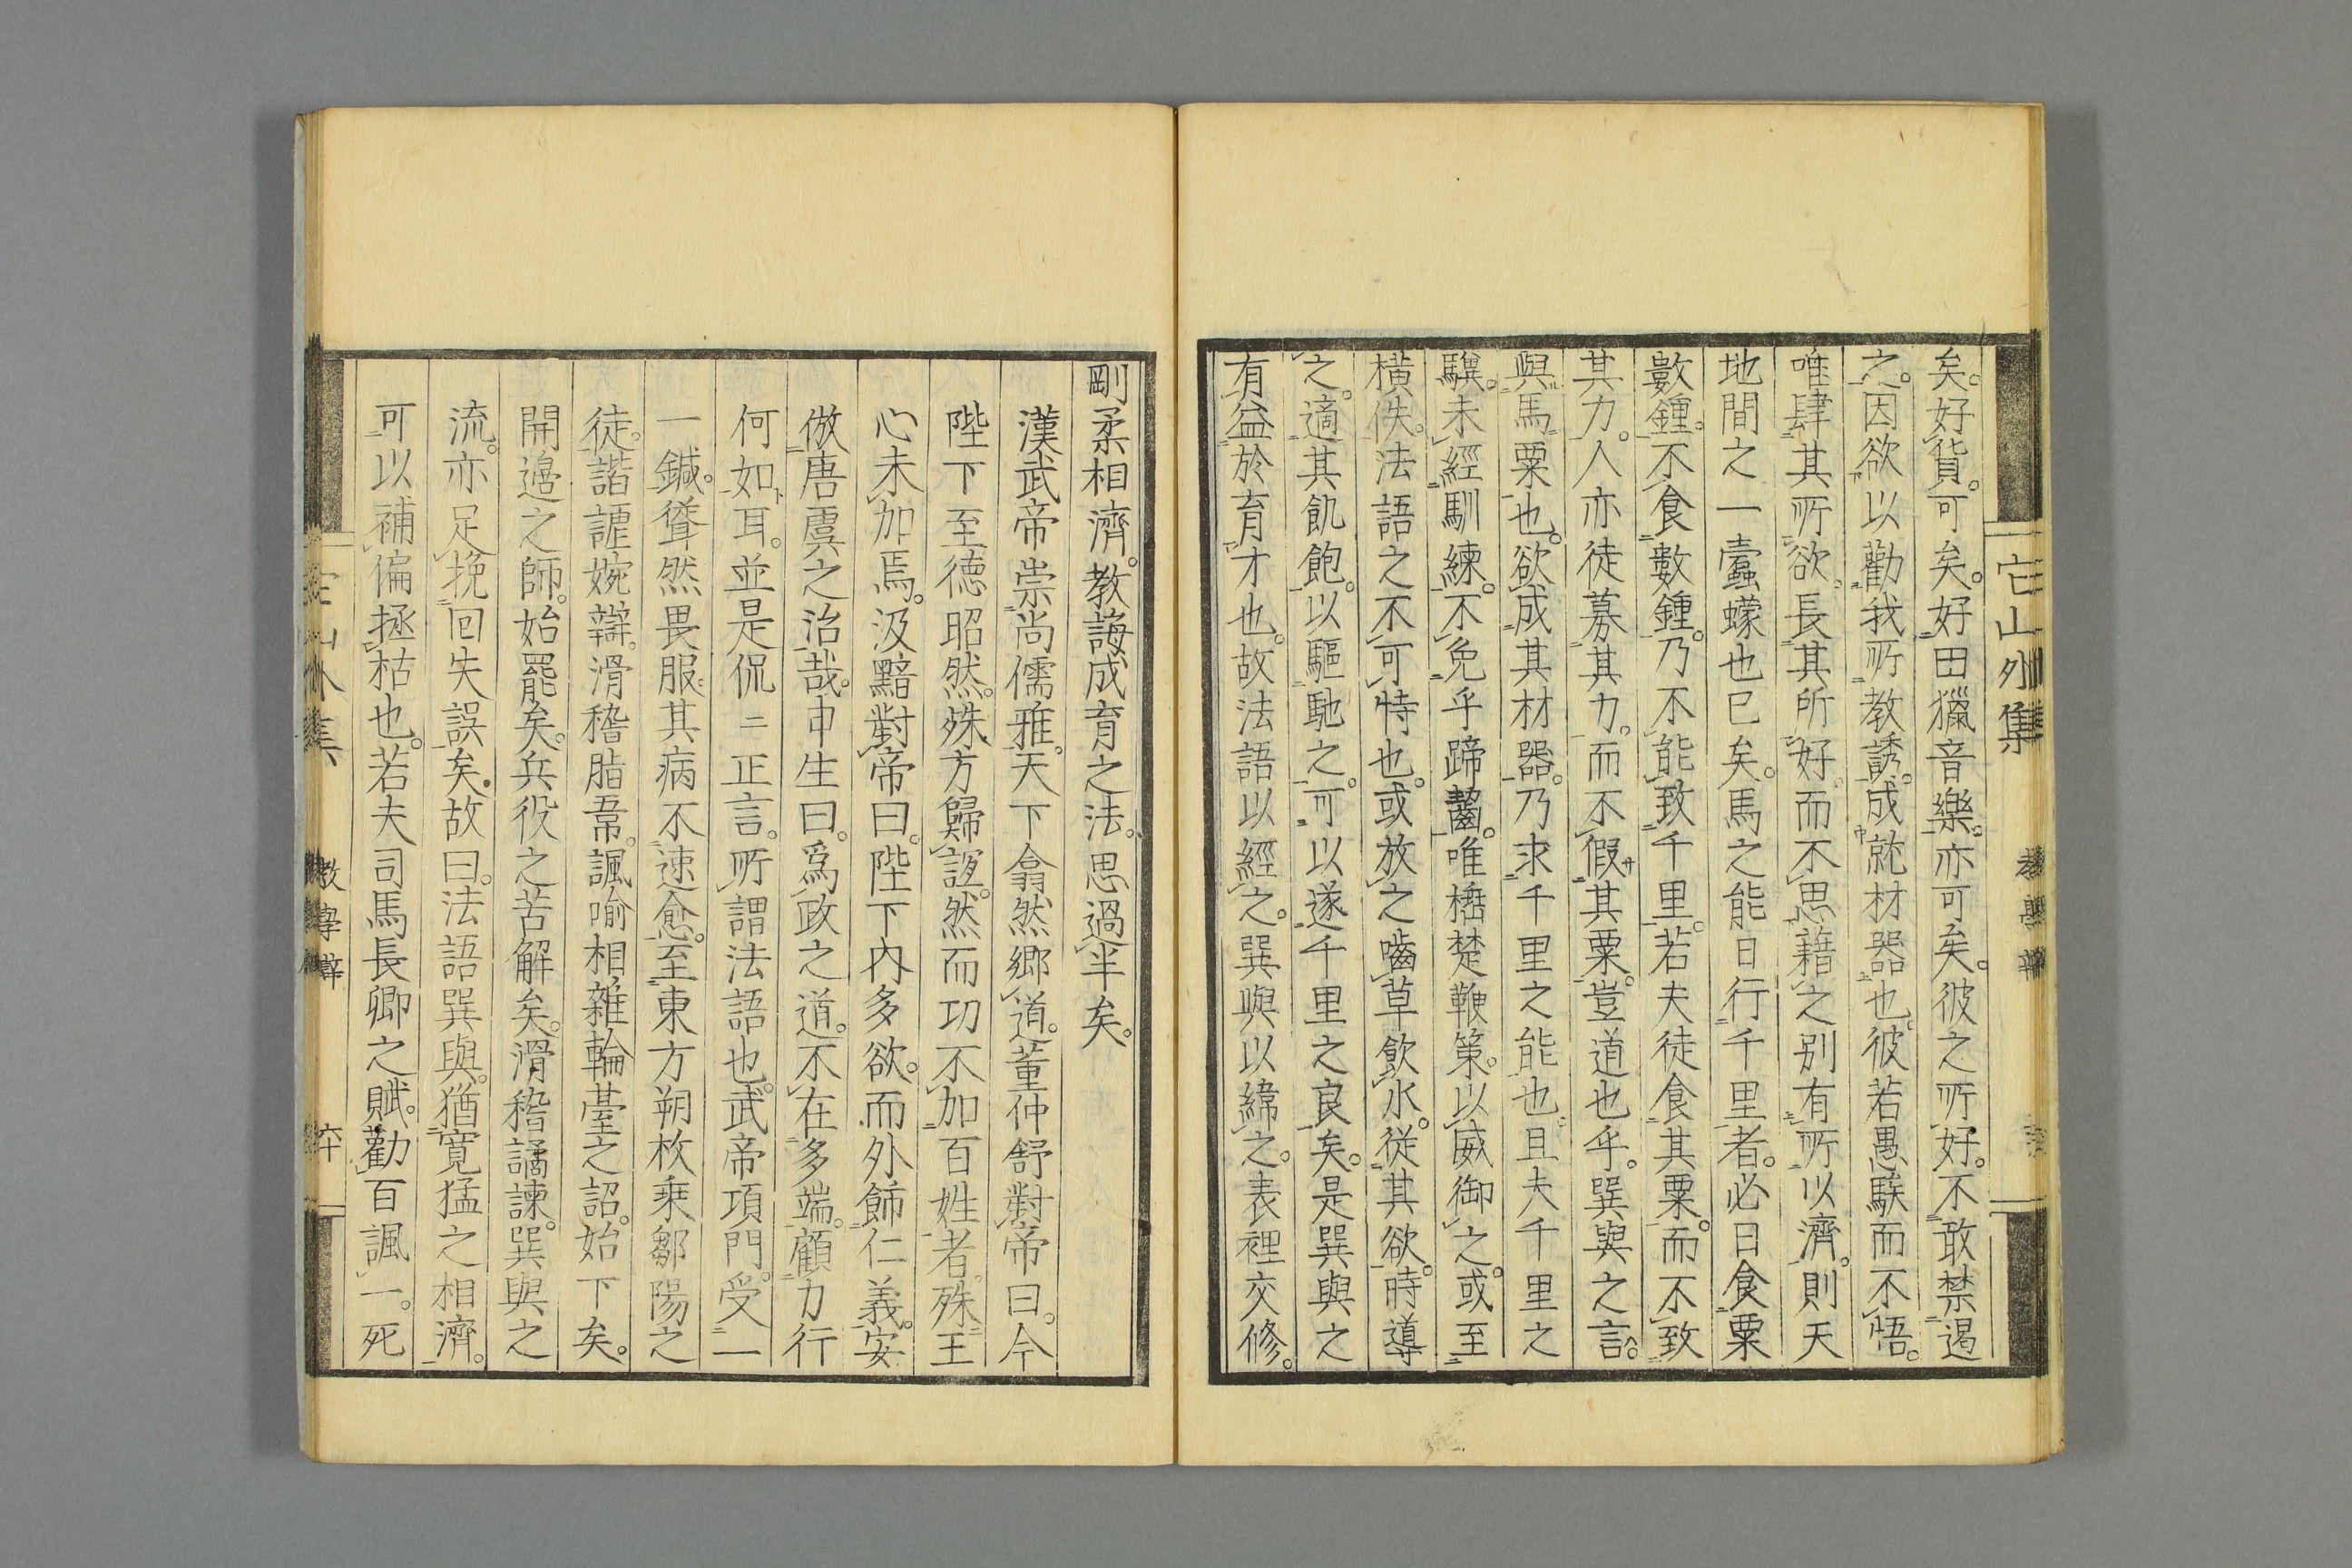 它山外集
矣。好貨。可矣。好田獵音樂。亦可矣。彼之所好。不敢禁遏
之。因欲以勸我所教誘。成就材器也。彼若愚騃而不悟。
唯肆其所欲。長其所好。而不思藉之别有所以濟。則天
地間之一蠧蠓也已矣。馬之能日行千里者。必日食粟
數鍾。不食數鍾。乃不能致千里。若夫徒食其粟。而不致
其力。人亦徒募其力。而不假其粟。豈道也乎。巽與之言。
與馬粟也。欲成其材器。乃求千里之能也。且夫千里之
驥。未經馴練。不免乎蹄齧。唯棰楚鞭策。以威御之。或至
橫佚。法語之不可恃也。或放之嚙草飲水。從其欲。時導
之。適其飢飽。以驅馳之。可以遂千里之良矣。是巽與之
有益於育才也。故法語以經之。巽與以緯之。表裡交修。
剛柔相濟。教誨成育之法。思過半矣。
漢武帝崇尚儒雅。天下翕然鄉道。董仲舒對帝曰。今
陛下至德昭然。殊方歸誼。然而功不加百姓者。殊王
心未加焉。汲黯對帝曰。陛下内多欲。而外飾仁義。安
倣唐虞之治哉。申生曰。爲政之道。不在多端。顧力行
何如耳。並是侃二正言。所謂法語也。武帝項門。受一
一鍼。聳然畏服。其病不速愈。至東方朔枚乘鄒陽之
徒。諧謔婉辯。滑稽脂韋。諷喻相雜。輪臺之詔。始下矣。
開邉之師。始罷矣。兵役之苦解矣。滑稽譎諫。巽與之
流。亦足挽回失誤矣。故曰。法語巽與。猶寛猛之相濟。
可以補偏拯枯也。若夫司馬長卿之賦。勸百諷一。死